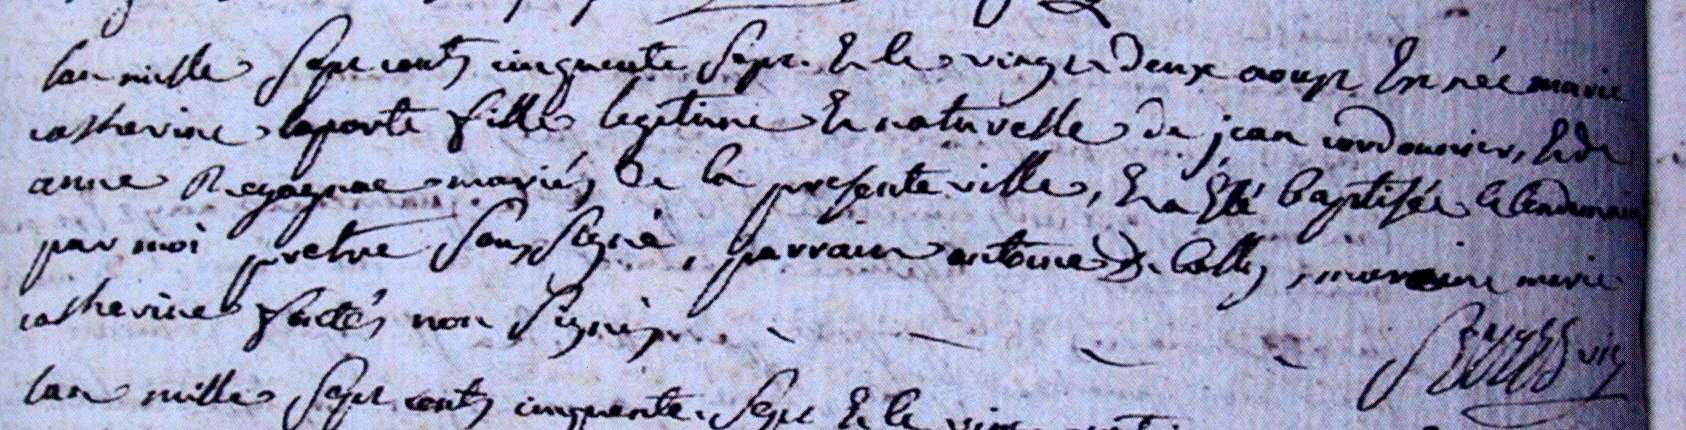 lan mille Sept cents cinquente Sept Et le vingt deux aoust Est née marie
catherine laporte fille legitime Et naturelle de jean cordonnier, Et de
anne Regagnac mariés de la presente ville, Et a Eté baptisée le lendemain
par moi pretre Soussigné, parrain antoine marraine marie
catherine non Signés
vic
lan mille Sept cents cinquente Sept Et le